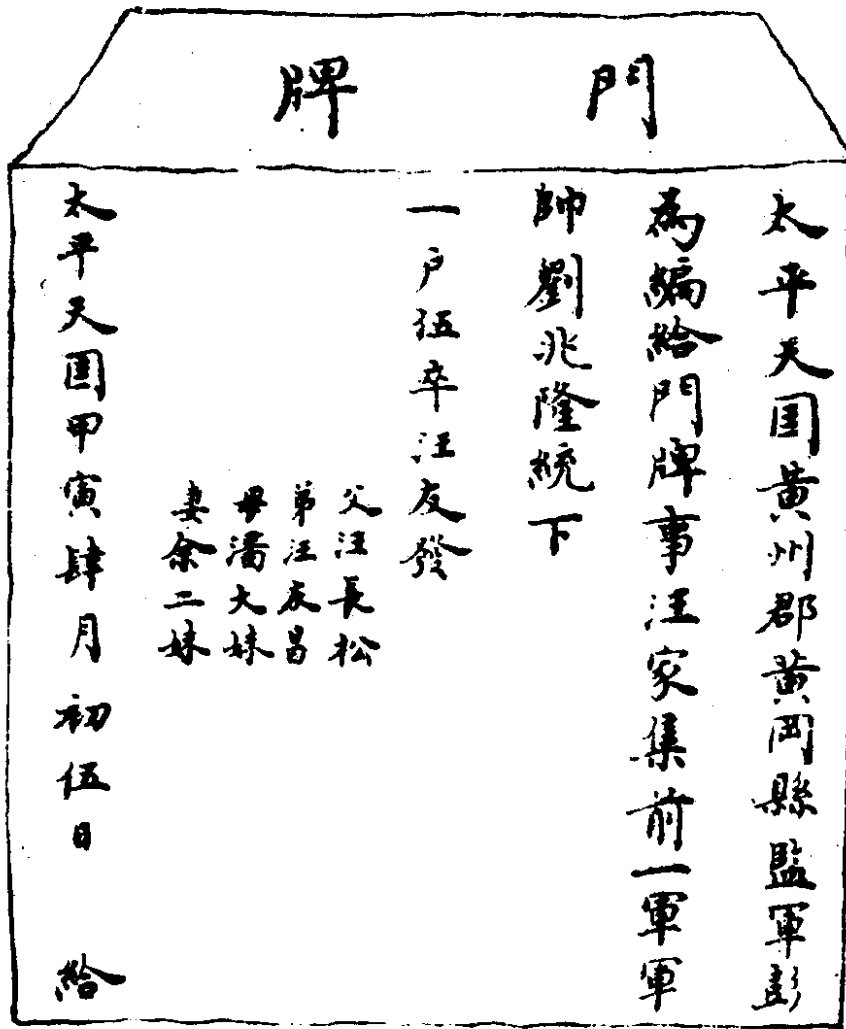 門牌
太平天囯黃州郡黃岡縣監軍彭
為編給門牌事汪家集前一軍軍
帥劉兆隆統下
一户伍卒汪友發
父汪長松
弟汪友昌
母潘大妹
妻余二妹
太平天囯甲寅肆月初伍日 給